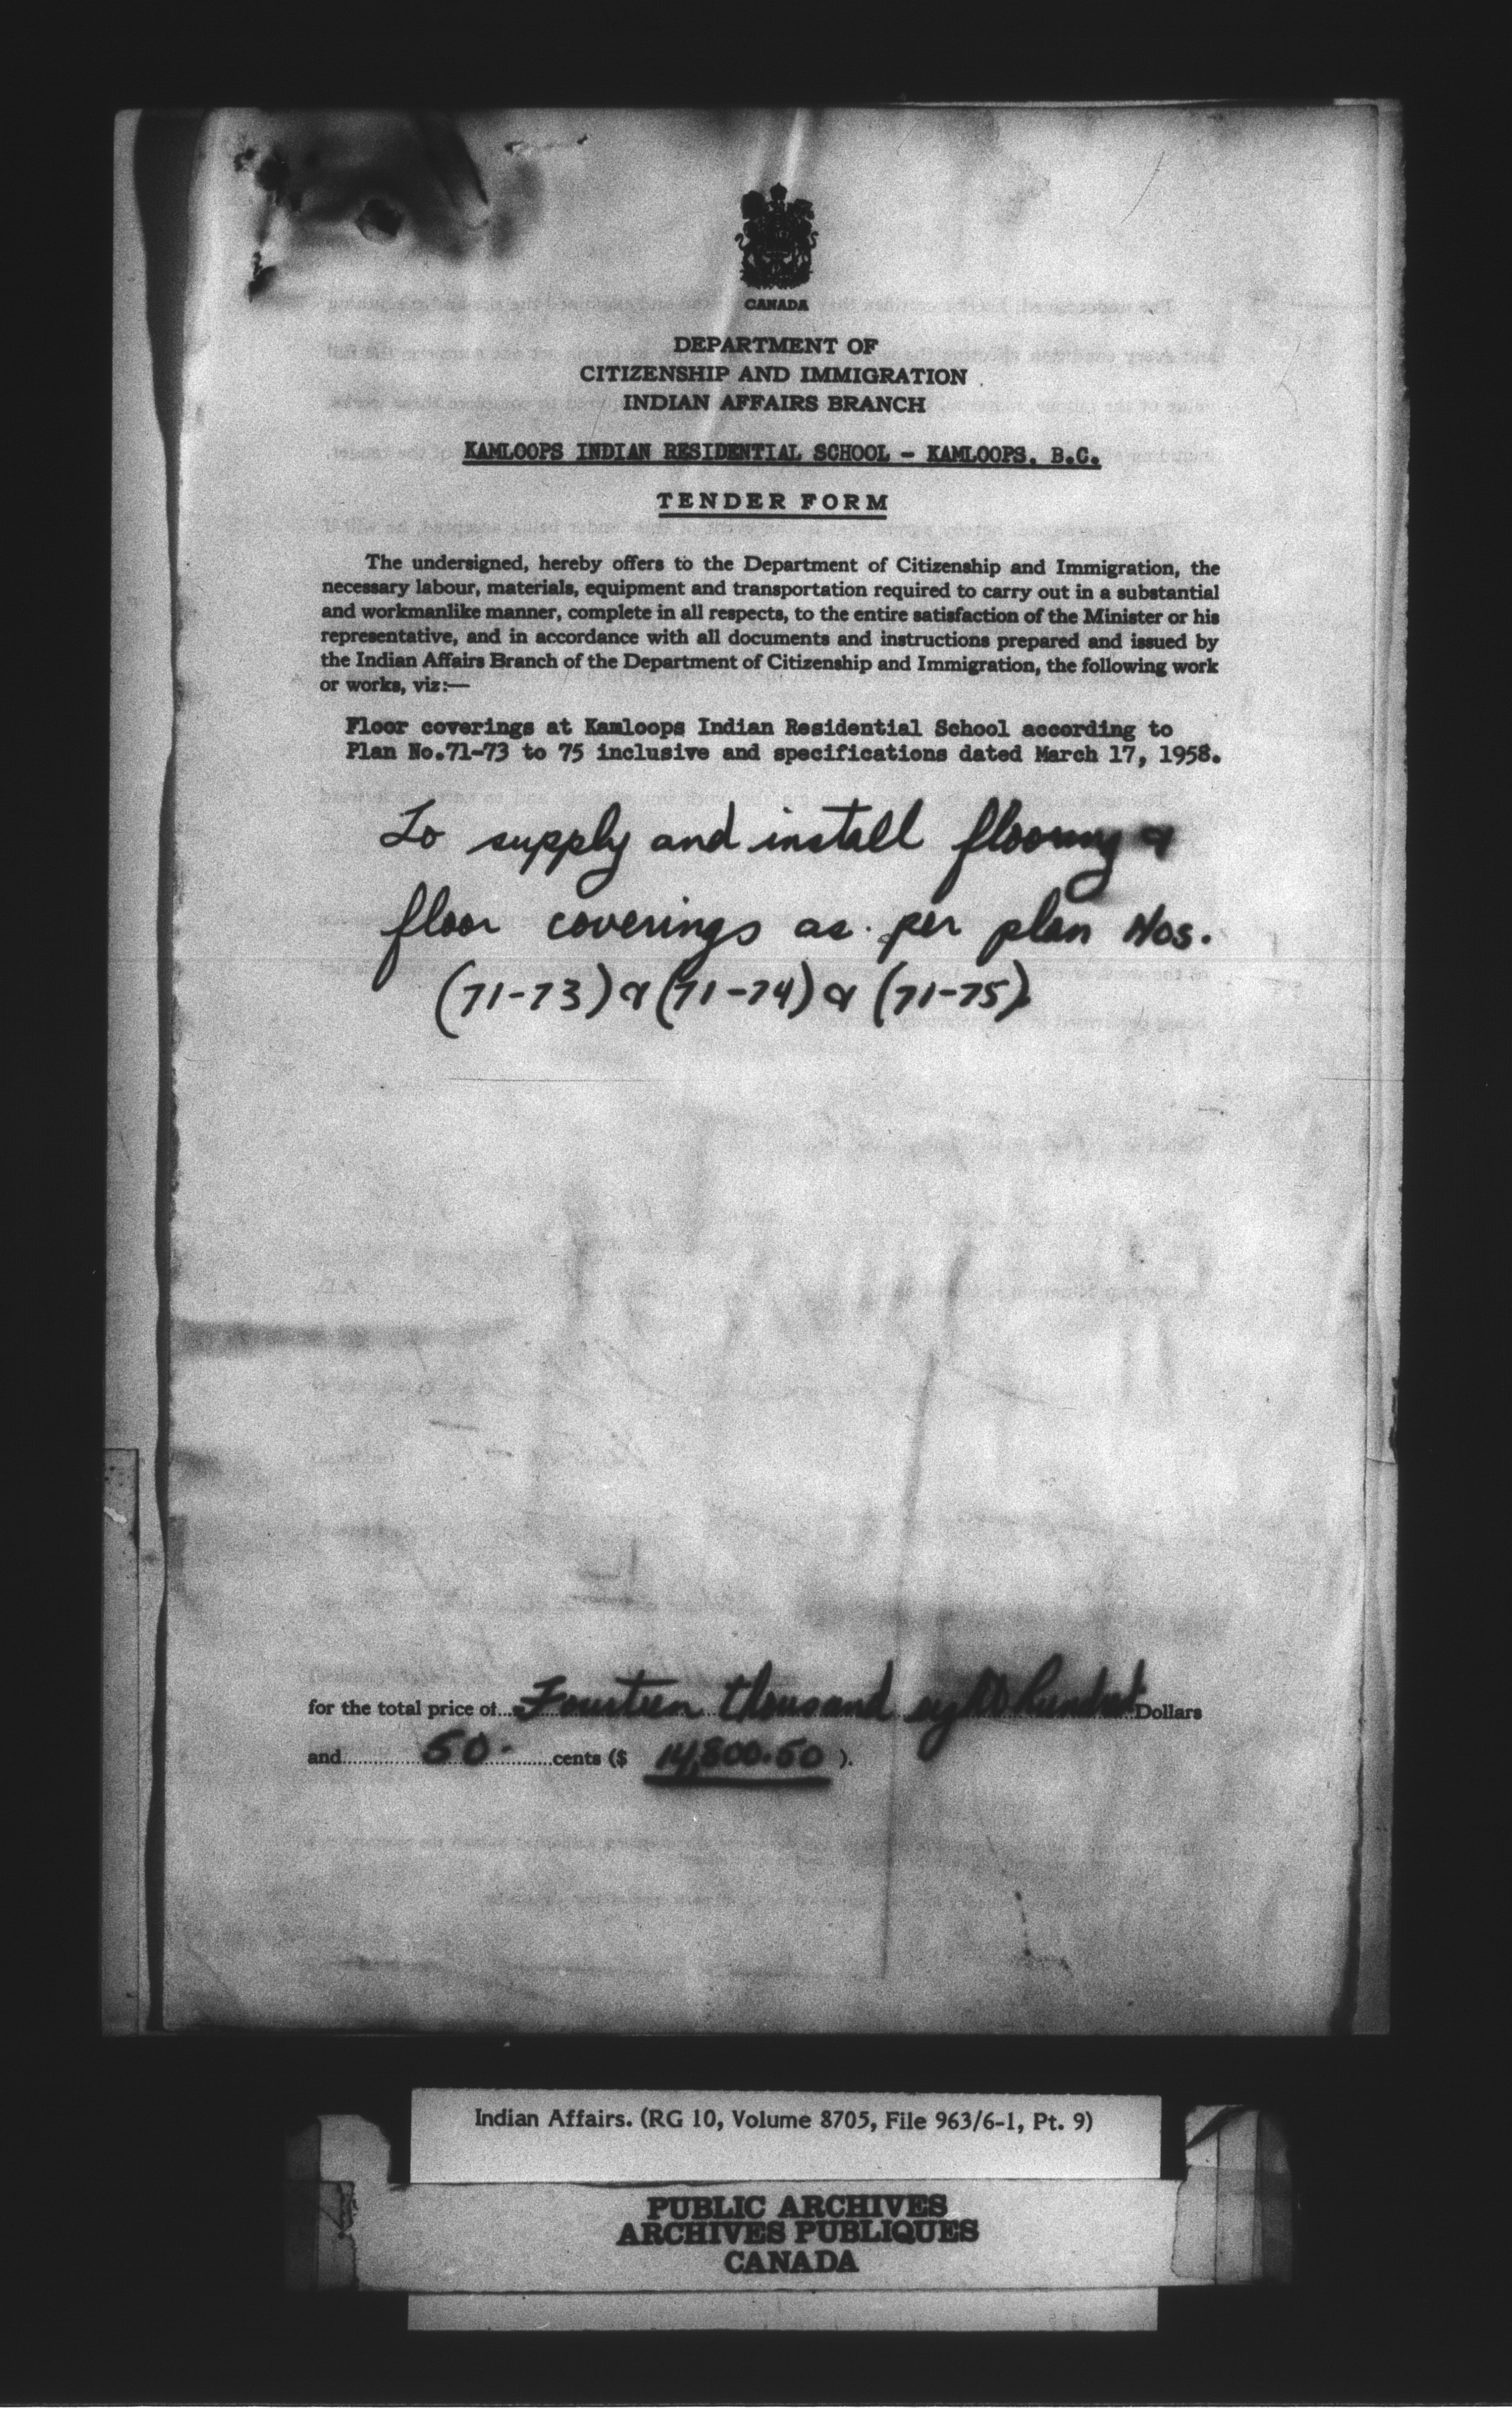 CANADA
DEPARTMENT OF
CITIZENSHIP AND IMMIGRATION
INDIAN AFFAIRS BRANCH
KAMLOOPS INDIAN RESIDENTIAL SCHOOL - KAMLOOPS, B.C.
TENDER FORM
The undersigned, hereby offers to the Department of Citizenship and Immigration, the
necessary labour, materials, equipment and transportation required to carry out in a substantial
and workmanlike manner, complete in all respects, to the entire satisfaction of the Minister or his
representative, and in accordance with all documents and instructions prepared and issued by
the Indian Affairs Branch of the Department of Citizenship and Immigration, the following work
or works, viz:—
Floor coverings at Kamloops Indian Residential School according to
Plan No.71-73 to 75 inclusive and specifications dated March 17, 1958.
To supply and install flooring &
floor coverings as per plan Nos.
(71-73) & (71-74) & (71-75)
for the total price of... Fourteen thousand eight hundred Dollars
and............50.............cents ($ 14,800.50 ).
Indian Affairs. (RG 10, Volume 8705, File 963/6-1, Pt. 9)
PUBLIC ARCHIVES
ARCHIVES PUBLIQUES
CANADA